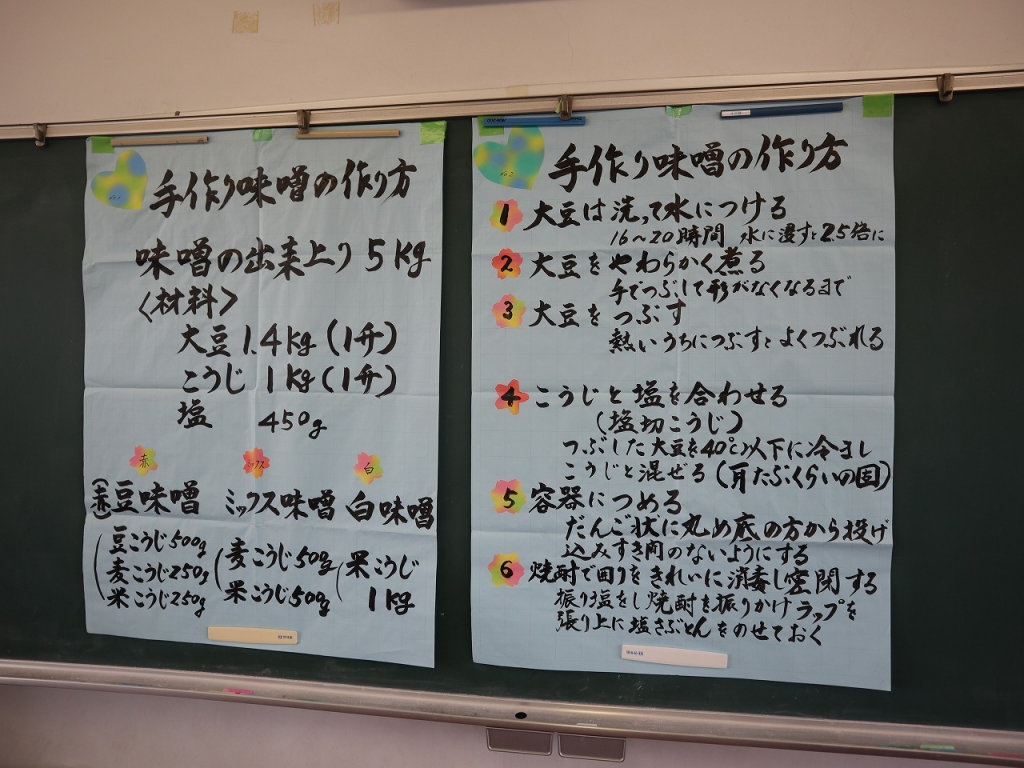 手作り味噌の作り方
味噌の出来上り 5kg
〈材料〉
大豆 1.4kg (1升)
こうじ 1kg (1升)
塩 450g
赤
ミックス
白
(赤)豆味噌
ミックス味噌
白味噌
豆こうじ500g
麦こうじ250g
米こうじ250g
麦こうじ50g
米こうじ50g
米こうじ
1kg
手作り味噌の作り方
1 大豆は洗って水につける
16〜20時間 水に浸すと2.5倍に
2 大豆をやわらかく煮る
手でつぶして形がなくなるまで
3 大豆をつぶす
熱いうちにつぶすとよくつぶれる
4 こうじと塩を合わせる
(塩切こうじ)
つぶした大豆を40℃以下に冷まし
こうじと混ぜる(耳たぶくらいの固)
5 容器につめる
だんご状に丸め底の方から投げ
込みすき間のないようにする
6 焼酎で回りをきれいに消毒し密閉する
振り塩をし焼酎を振りかけラップを
張り上に塩ざぶとんをのせておく